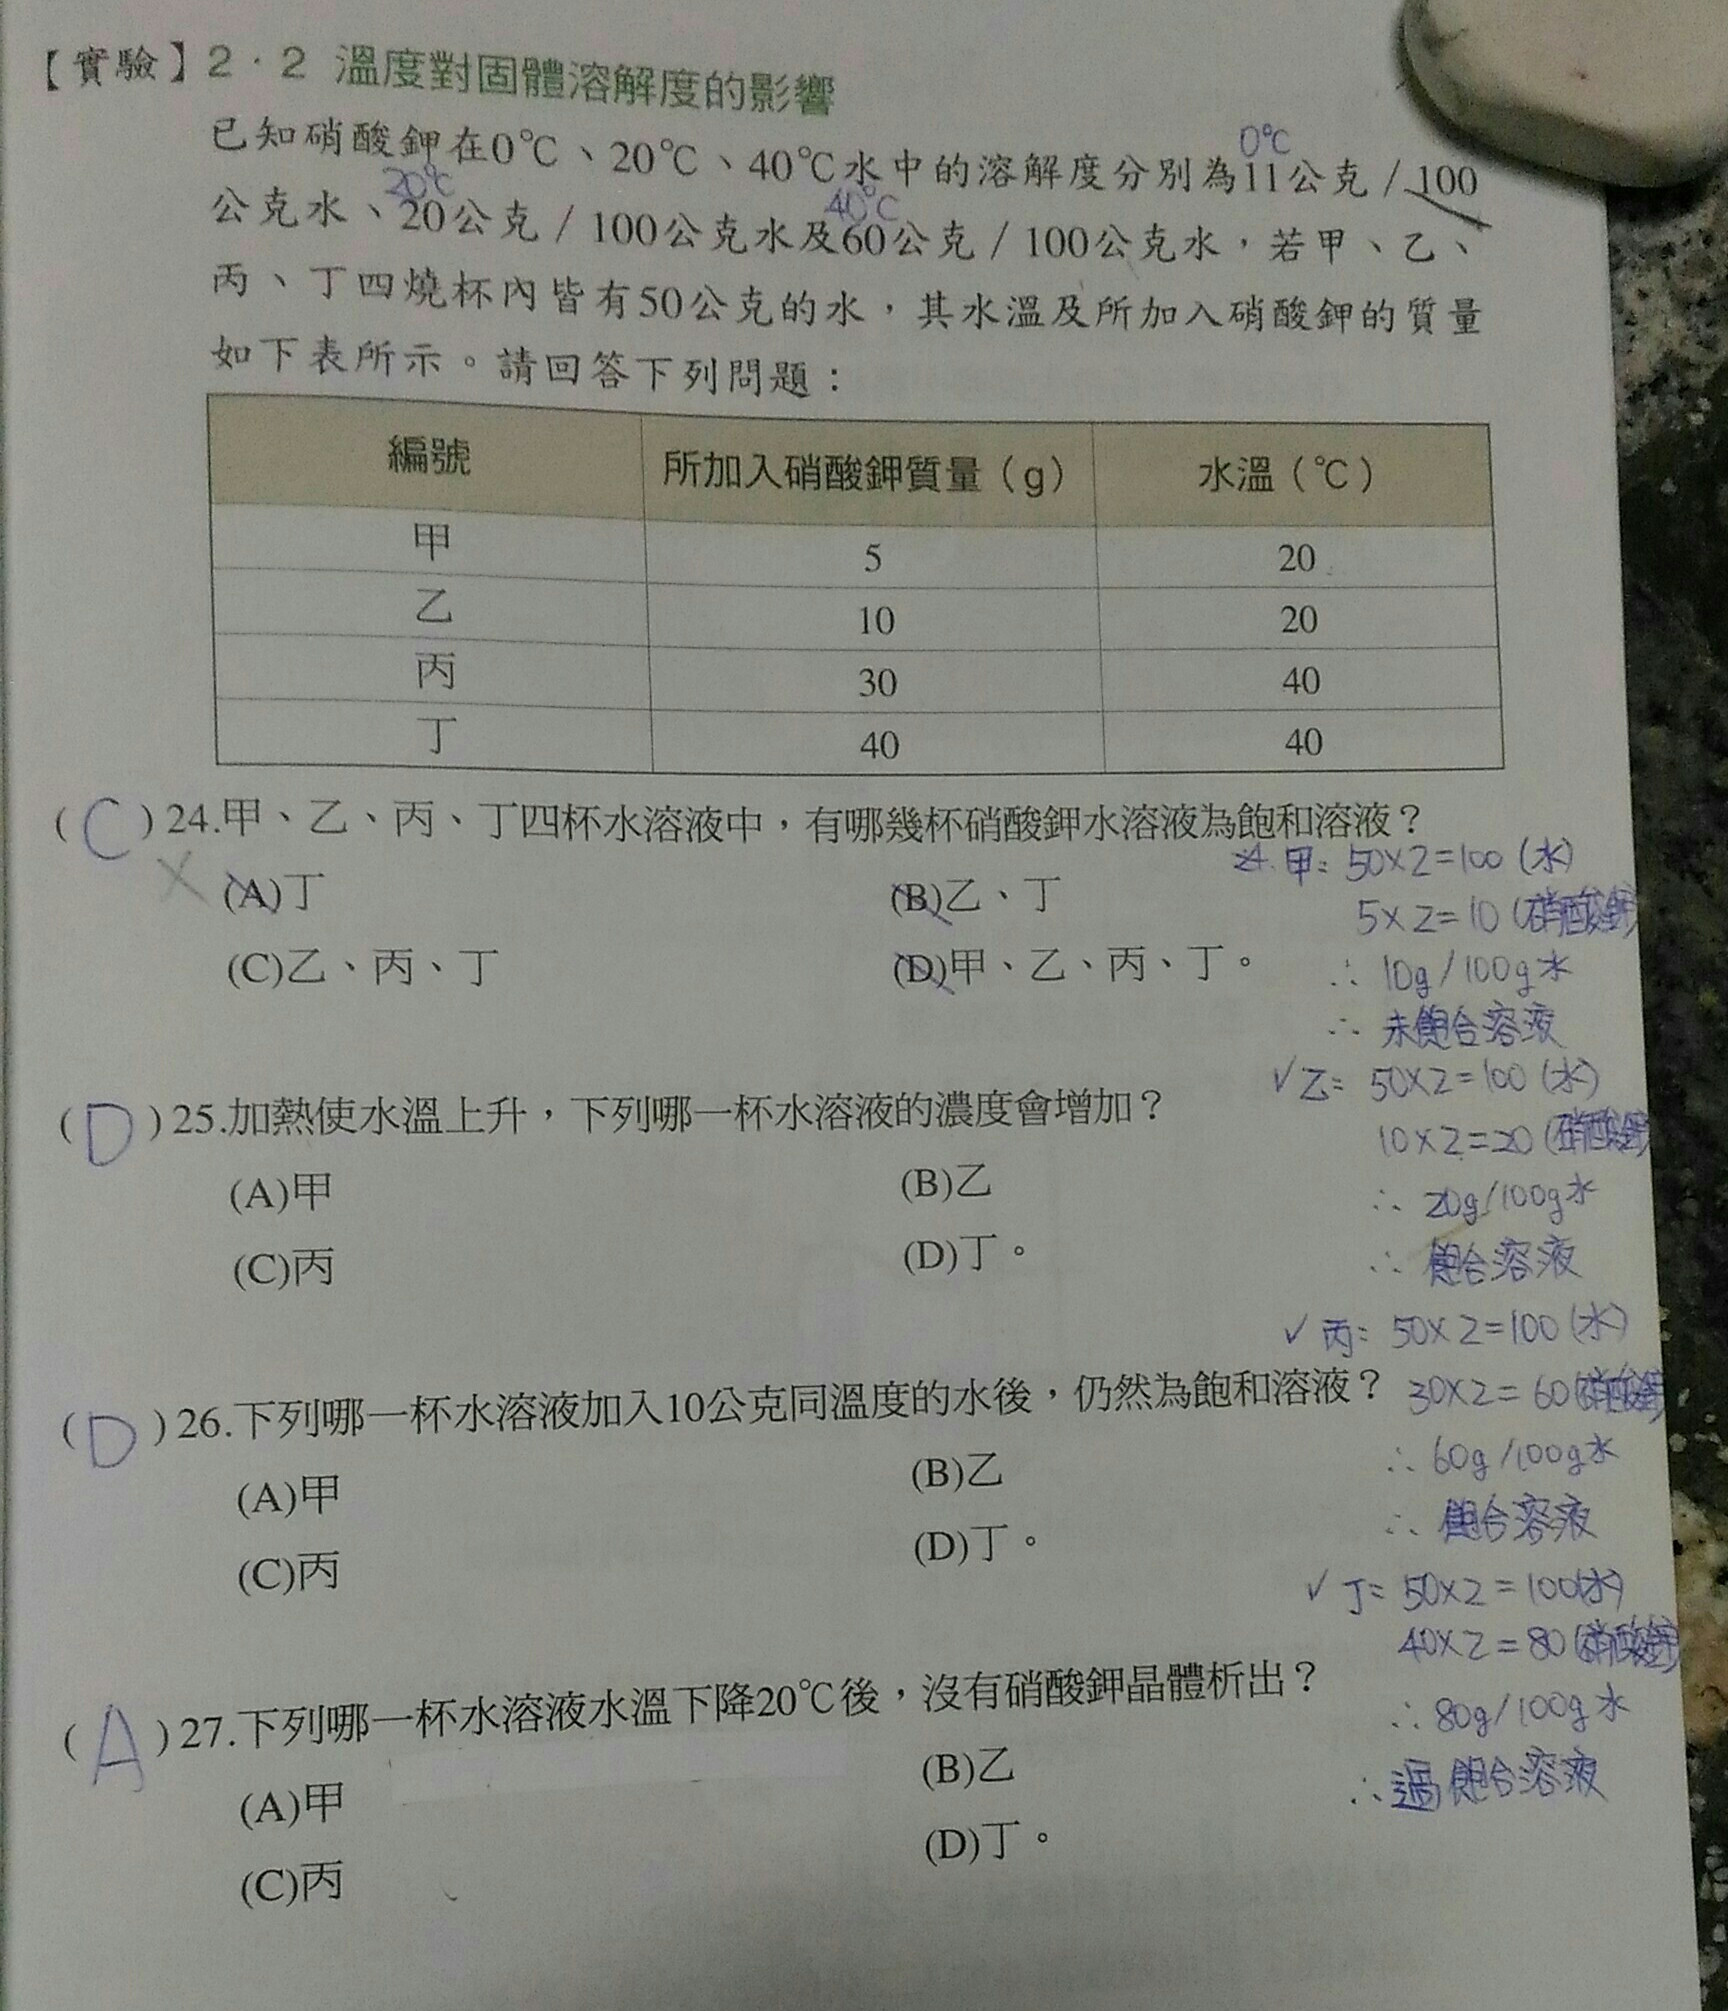 【實驗】2‧2 溫度對固體溶解度的影響
已知硝酸鉀在0℃、20℃、40℃水中的溶解度分別為11公克/100
0℃
公克水、20公克/100公克水及60公克/100公克水,若甲、乙、
20℃
40℃
丙、丁四燒杯內皆有50公克的水,其水溫及所加入硝酸鉀的質量
如下表所示。請回答下列問題:
編號 所加入硝酸鉀質量(g) 水溫(℃)
甲 5 20
乙 10 20
丙 30 40
丁 40 40
(C)24.甲、乙、丙、丁四杯水溶液中,有哪幾杯硝酸鉀水溶液為飽和溶液?
(A)丁 (B)乙、丁
(C)乙、丙、丁 (D)甲、乙、丙、丁。
(D)25.加熱使水溫上升,下列哪一杯水溶液的濃度會增加?
(A)甲 (B)乙
(C)丙 (D)丁。
(D)26.下列哪一杯水溶液加入10公克同溫度的水後,仍然為飽和溶液?
(A)甲 (B)乙
(C)丙 (D)丁。
(A)27.下列哪一杯水溶液水溫下降20℃後,沒有硝酸鉀晶體析出?
(A)甲 (B)乙
(C)丙 (D)丁。
24. 甲: 50×2=100(水)
5×2=10(硝酸鉀)
∴ 10g/100g水
∴ 未飽合溶液
✓乙= 50×2=100(水)
10×2=20(硝酸鉀)
∴ 20g/100g水
∴ 飽合溶液
✓丙= 50×2=100(水)
30×2=60(硝酸鉀)
∴ 60g/100g水
∴ 飽合溶液
✓丁= 50×2=100(水)
40×2=80(硝酸鉀)
∴ 80g/100g水
∴過飽合溶液